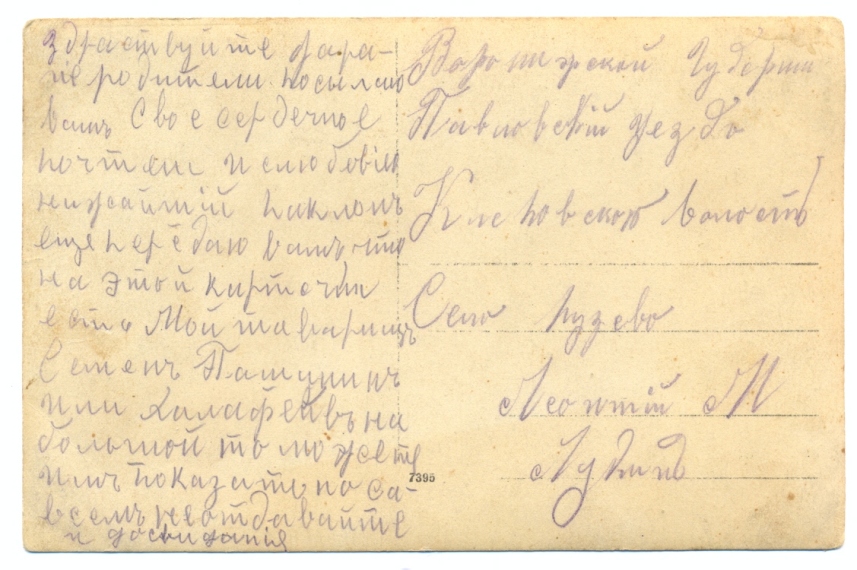 здраствуйте дара-
гие родители посылаю
вамъ Свое сердечное
почтеніи и слюбовію
нижайшій паклонъ
еще передаю вамъ что
на этой карточки
есть Мой таварищъ
Семенъ Пашунинъ
или Халафейвъ на
большой томожете
имъ показать но са-
всемъ неотдавайте
и досвиданія
Воронижской Губерни
Павловскій уезда
Клеповскою Волость
Село пузево
Леонтій М
Лудинъ
7395